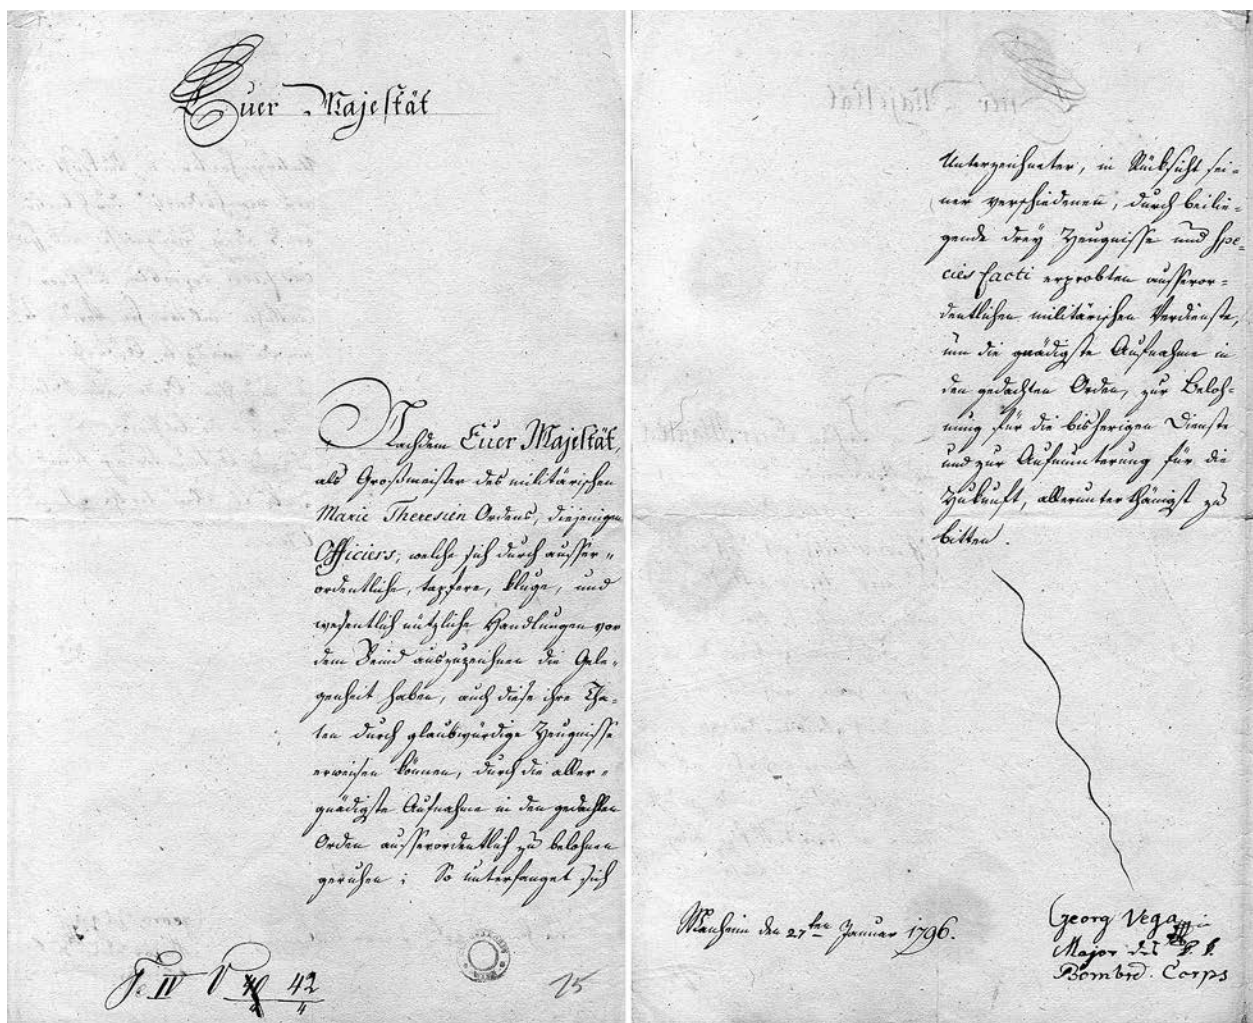 Euer Majestät
Nachdem Euer Majestät,
als Großmeister des militärischen
Marie Theresien Ordens, diejenigen
Officiers, welche sich durch ausser-
ordentliche, tapfere, kluge, und
wesentlich nützliche Handlungen vor
dem Feind auszuzeichnen die Gele-
genheit haben, auch diese ihre Tha-
ten durch glaubwürdige Zeugnisse
erweisen können, durch die aller-
gnädigste Aufnahme in den gedachten
Orden ausserordentlich zu belohnen
geruhen; So unterfanget sich
IV V 40 42
4 4
15
Unterzeichneter, in Rücksicht sei-
ner verschiedenen, durch beilie-
gende drey Zeugnisse und Spe-
cies facti erprobten ausseror-
dentlichen militärischen Verdienste,
um die gnädigste Aufnahme in
den gedachten Orden, zur Beloh-
nung für die bisherigen Dienste
und zur Aufmunterung für die
Zukunft, allerunterthänigst zu
bitten.
Manheim den 27ten Januar 1796.
Georg Vega
Major des k. k.
Bombrd. Corps